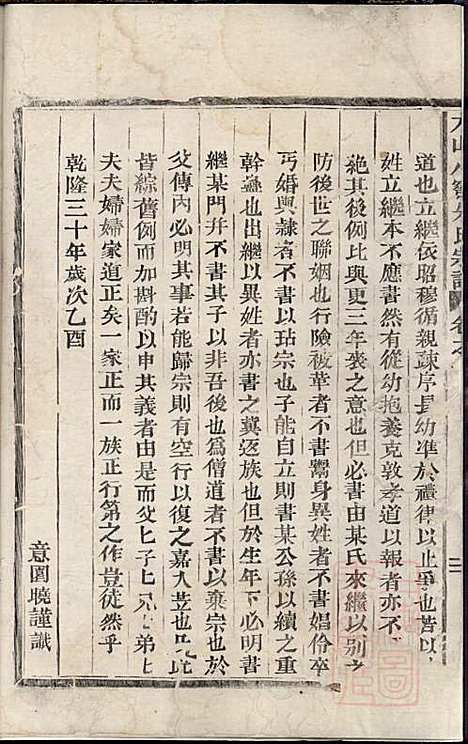 道也立繼依昭穆循親疎序長幼準於禮律以止爭也若以
姓立繼本不應書然有從幼抱養克敦孝道以報者亦不
絶其後例比與更三年喪之意也但必書由某氏來繼以别之
防後世之聯姻也行險被華者不書鬻身異姓者不書娼伶卒
丐婚與隸者不書以玷宗也子能自立則書某公孫以續之重
幹蠱也出繼以異姓者亦書之冀返族也但於生年下必明書
繼某門并不書子以非吾後也爲僧道者不書以棄宗也於
父傳內必明其事若能歸宗則有空行以復之嘉人莅也凡此
皆綜舊例而加斟酌以申其義者由是而父匕子匕兄匕弟匕
夫夫婦婦家道正矣一家正而一族正行第之作豈徒然乎
乾隆三十年歲次乙酉
意園曉謹識